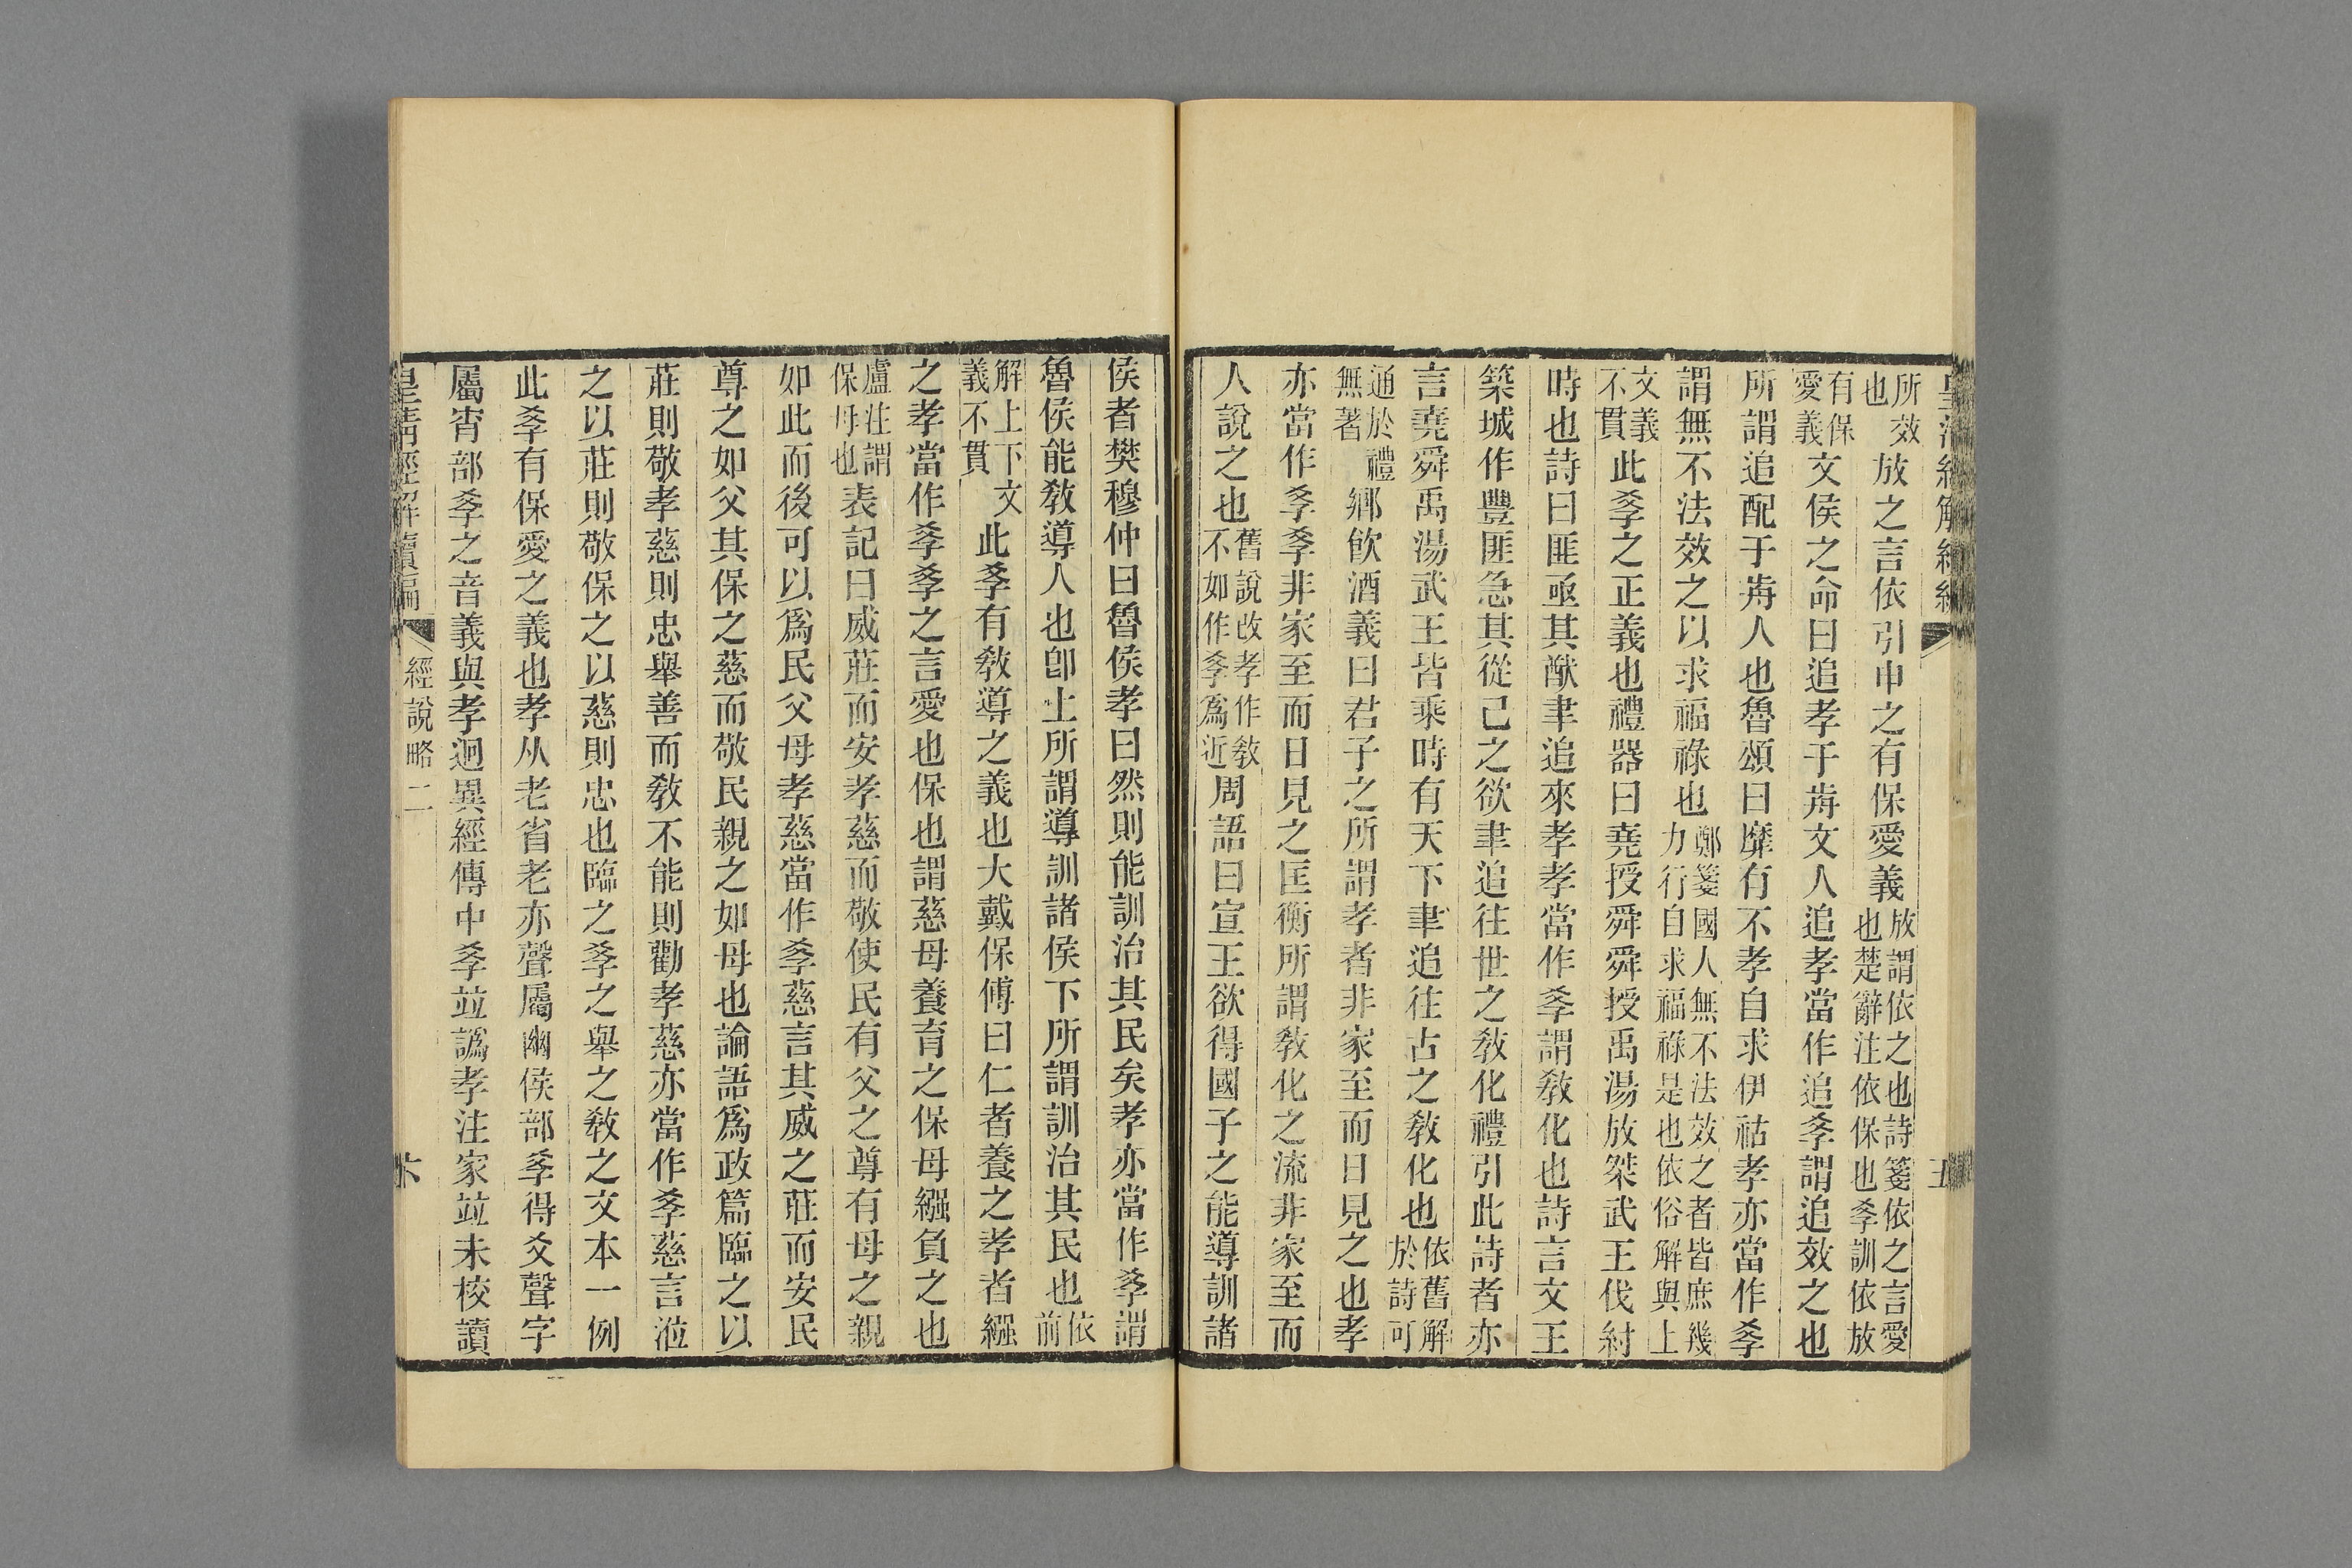 皇清經解續編 五
所效也放之言依引申之有保愛義放謂依之也詩箋依之言愛也楚辭注依保也𡥉訓依放
有保愛義文侯之命曰追孝于歬文人追孝當作追𡥉謂追效之也
所謂追配于歬人也魯頌曰靡有不孝自求伊祜孝亦當作𡥉
謂無不法效之以求福祿也鄭箋國人無不法效之者皆庶幾力行自求福祿是也依俗解與上
文義不貫此𡥉之正義也禮器曰堯授舜舜授禹湯放桀武王伐紂
時也詩曰匪亟其猷聿追來孝孝當作𡥉謂敎化也詩言文王
築城作豐匪急其從己之欲聿追往世之敎化禮引此詩者亦
言堯舜禹湯武王皆乘時有天下聿追往古之敎化也依舊解於詩可
通於禮無著鄉飮酒義曰君子之所謂孝者非家至而日見之也孝
亦當作𡥉𡥉非家至而日見之匡衡所謂敎化之流非家至而
人說之也舊說改孝作敎不如作𡥉爲近周語曰宣王欲得國子之能導訓諸
侯者樊穆仲曰魯侯孝曰然則能訓治其民矣孝亦當作𡥉謂
魯侯能敎導人也卽上所謂導訓諸侯下所謂訓治其民也依前
解上下文義不貫此𡥉有敎導之義也大戴保傅曰仁者養之孝者繈
之孝當作𡥉𡥉之言愛也保也謂慈母養育之保母繈負之也
盧注謂保母也表記曰威莊而安孝慈而敬使民有父之尊有母之親
如此而後可以爲民父母孝慈當作𡥉慈言其威之莊而安民
尊之如父其保之慈而敬民親之如母也論語爲政篇臨之以
莊則敬孝慈則忠舉善而敎不能則勸孝慈亦當作𡥉慈言涖
之以莊則敬保之以慈則忠也臨之𡥉之舉之敎之文本一例
此𡥉有保愛之義也孝从老省老亦聲屬幽侯部𡥉得爻聲字
屬宵部𡥉之音義與孝迥異經傳中𡥉竝譌孝注家竝未校讀
皇清經解續編 經說略二 六